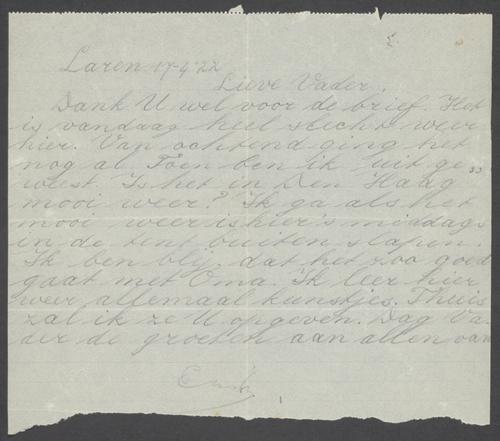 Laren 17-4-22
Lieve Vader,
Dank U wel voor de brief. Het
is vandaag heel slecht weer
hier. Van ochtend ging het
nog al. Toen ben ik uit ge
weest. Is het in Den Haag
mooi weer? Ik ga als het
mooi weer is hier 's middags
in de tent buiten slapen.
Ik ben blij, dat het zoo goed
gaat met Oma. Ik leer hier
weer allemaal kunstjes. Thuis
zal ik ze U opgeven. Dag Va-
der de groeten aan allen van